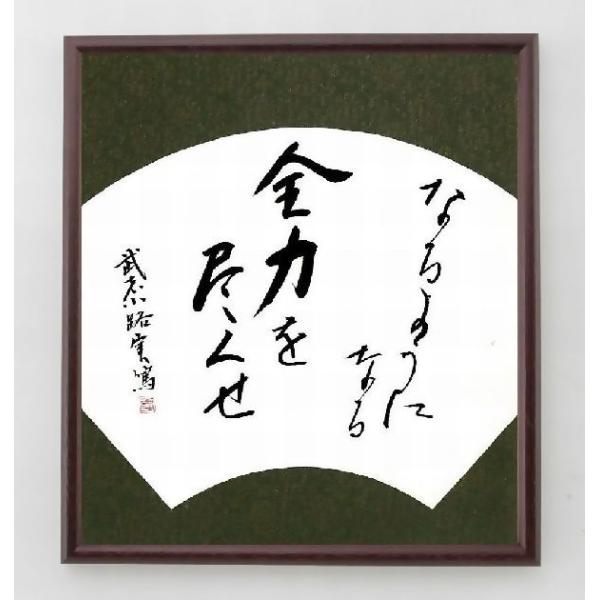 なるようになる
なる
全力を
尽くせ
武者小路実篤